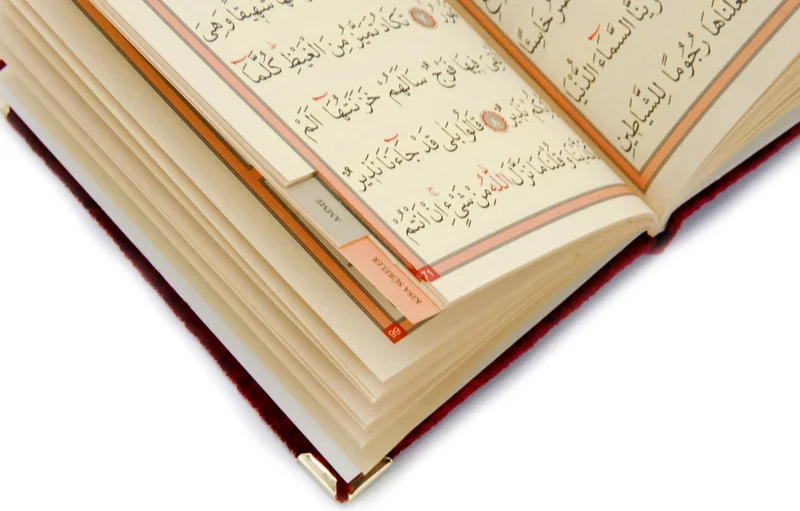 خَاسِئًا
زَيَّنَّا السَّمَاءَ الدُّنْيَا
رُجُومًا لِلشَّيَاطِينِ
شَهِيقًا وَهِيَ
٧ تَكَادُ تَمَيَّزُ مِنَ الْغَيْظِ كُلَّمَا
فِيهَا فَوْجٌ سَأَلَهُمْ خَزَنَتُهَا اَلَمْ
٨ قَالُوا بَلٰى قَدْ جَاءَنَا نَذِيرٌ
وَقُلْنَا مَا نَزَّلَ اللّٰهُ مِنْ شَيْءٍ اِنْ اَنْتُمْ
71
AMME
KISA SÛRELER
99